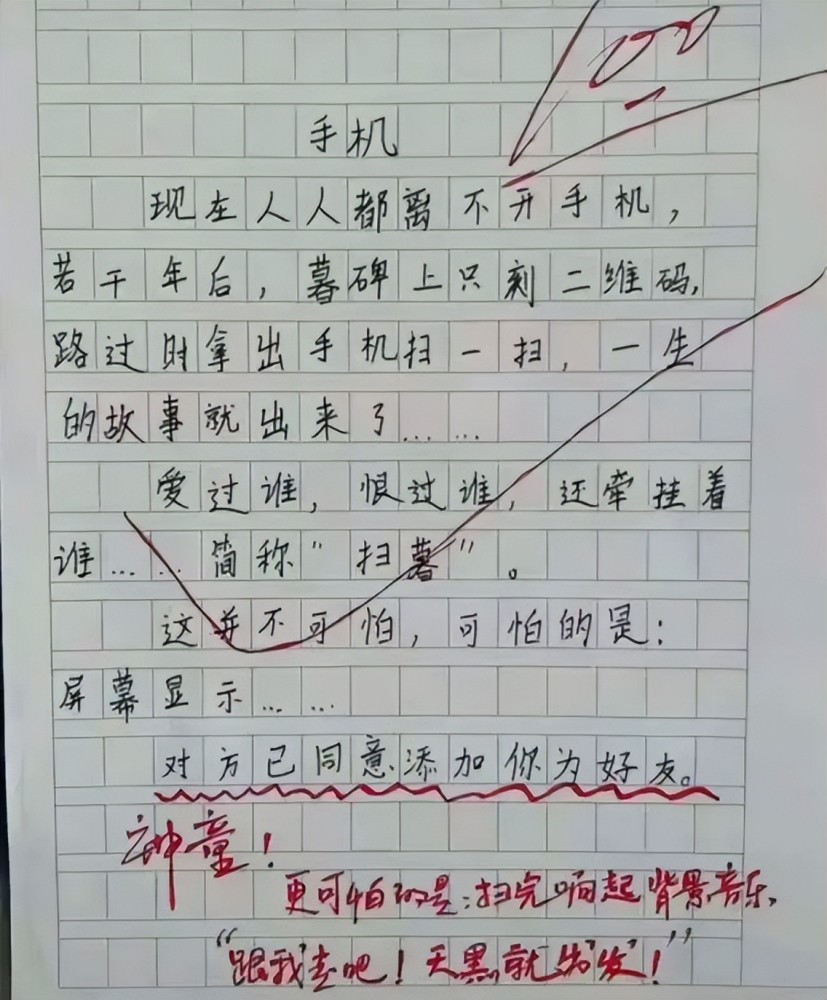 100
手机
现在人人都离不开手机，
若干年后，暮碑上只刻二维码，
路过时拿出手机扫一扫，一生
的故事就出来了……
爱过谁，恨过谁，还牵挂着
谁……简称"扫暮"。
这并不可怕，可怕的是：
屏幕显示……
对方已同意添加你为好友。
神童！
更可怕的是：扫完响起背景音乐，
“跟我去吧！天黑就出发！”